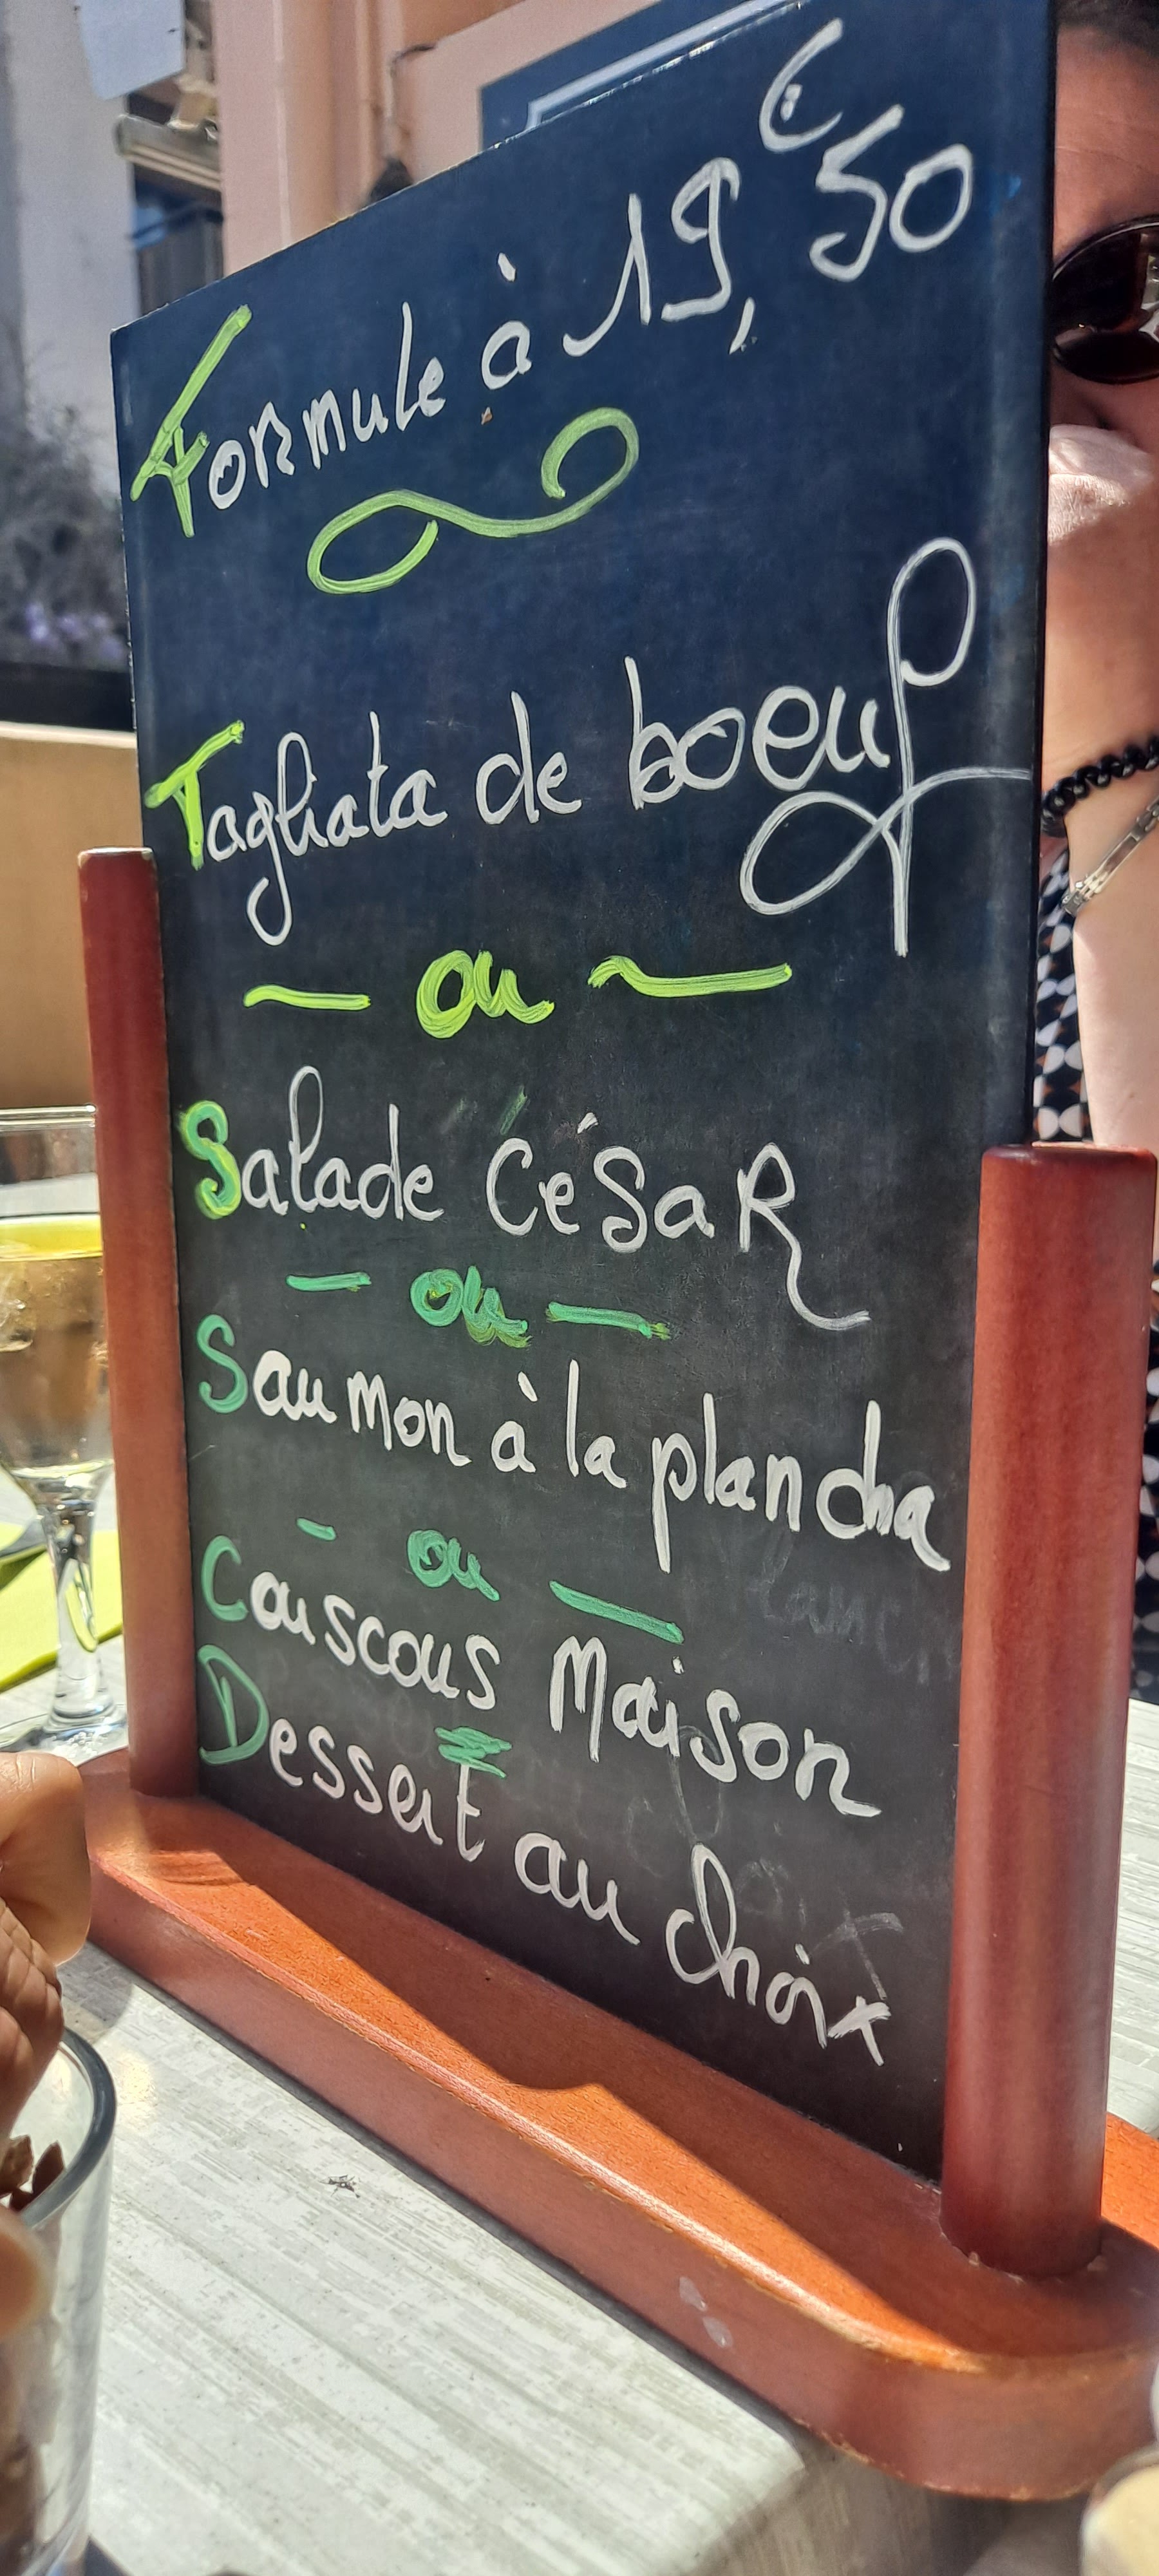 Formule à 19,€50
Tagliata de boeuf
- ou -
Salade César
- ou -
Saumon à la plancha
- ou -
Couscous Maison
Dessert au choix